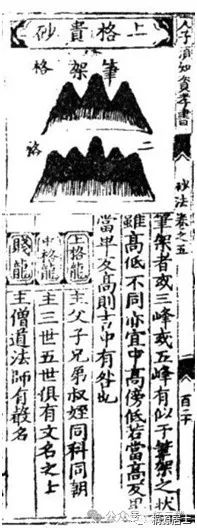 人子須知資孝書
砂法卷之五
上格貴砂
筆架格
二格
筆架者或三峰或五峰有似于筆架之狀
雖高低不同亦宜中高傍低若當高反卑
當卑反高則吉中有咎也
上格龍 主父子兄弟叔姪同科同朝
中格龍 主三世五世俱有文名之士
賤龍 主僧道法師有名
公众号
居士